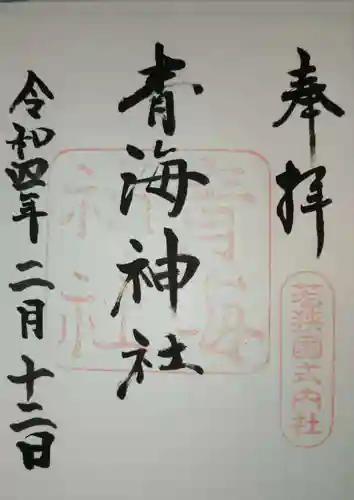 奉拝
若狭国式内社
青海神社
青海神社
令和四年二月十二日